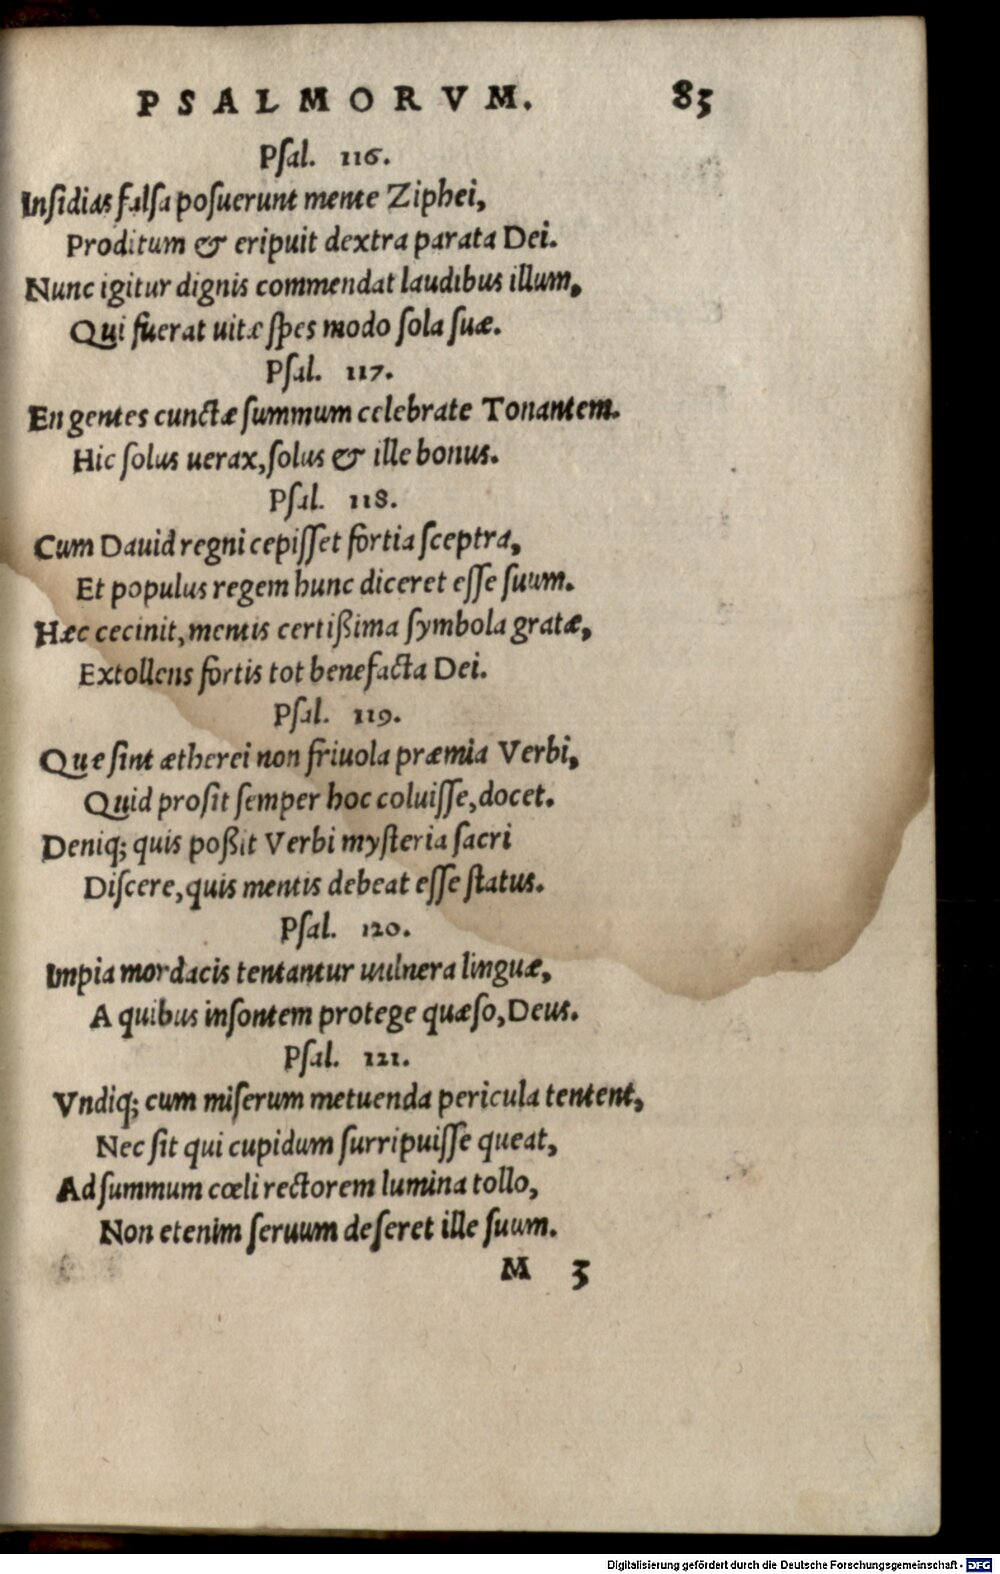 PSALMORVM. 85
Pſal. 116.
Inſidias falſa poſuerunt mente Ziphei,
Proditum & eripuit dextra parata Dei.
Nunc igitur dignis commendat laudibus illum,
Qui fuerat uitæ ſpes modo ſola ſuæ.
Pſal. 117.
En gentes cunctæ ſummum celebrate Tonantem.
Hic ſolus uerax, ſolus & ille bonus.
Pſal. 118.
Cum Dauid regni cepiſſet fortia ſceptra,
Et populus regem hunc diceret eſſe ſuum.
Hæc cecinit, mentis certißima ſymbola gratæ,
Extollens fortis tot benefacta Dei.
Pſal. 119.
Quæ ſint ætherei non friuola præmia Verbi,
Quid proſit ſemper hoc coluiſſe, docet.
Deniq; quis poßit Verbi myſteria ſacri
Diſcere, quis mentis debeat eſſe ſtatus.
Pſal. 120.
Impia mordacis tentantur uulnera linguæ,
A quibus inſontem protege quæſo, Deus.
Pſal. 121.
Vndiq; cum miſerum metuenda pericula tentent,
Nec ſit qui cupidum ſurripuiſſe queat,
Ad ſummum cœli rectorem lumina tollo,
Non etenim ſeruum deſeret ille ſuum.
M 3
Digitalisierung gefördert durch die Deutsche Forschungsgemeinschaft - DFG